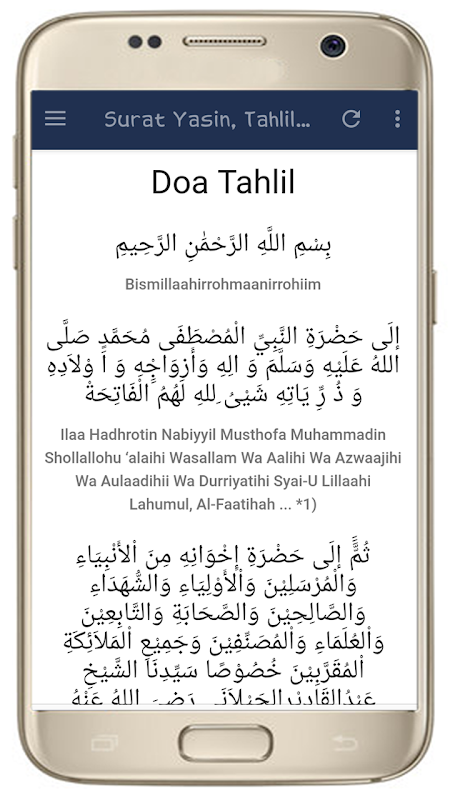 Surat Yasin, Tahlil...
Doa Tahlil
بِسْمِ اللَّهِ الرَّحْمَٰنِ الرَّحِيمِ
Bismillaahirrohmaanirrohiim
إِلَى حَضْرَةِ النَّبِيِّ الْمُصْطَفَى مُحَمَّدٍ صَلَّى
اللهُ عَلَيْهِ وَسَلَّمَ وَ اٰلِهِ وَأَزِوَاجِهِ وَ اَ وْلَادِهِ
وَ ذُ رِّ يَاتِهِ شَيْئُ ِللهِ لَهُمُ الْفَاتِحَةْ
Ilaa Hadhrotin Nabiyyil Musthofa Muhammadin
Shollallohu ‘alaihi Wasallam Wa Aalihi Wa Azwaajihi
Wa Aulaadihii Wa Durriyatihi Syai-U Lillaahi
Lahumul, Al-Faatihah ... *1)
ثُمَّ إِلَى حَضْرَةِ إِخْوَانِهِ مِنَ اْلأَنْبِيَاءِ
وَالْمُرْسَلِيْنَ وَاْلأَوْلِيَاءِ وَالشُّهَدَاءِ
وَالصَّالِحِيْنَ وَالصَّحَابَةِ وَالتَّابِعِيْنَ
وَاْلعُلَمَاءِ وَاْلمُصَنِّفِيْنَ وَجَمِيْعِ اْلمَلاَئِكَةِ
اْلمُقَرَّبِيْنَ خُصُوْصًا سَيِّدِنَا الشَّيْخِ
عَبْدُالقَادِيْرِالجَيْلاَنِي رَضِيَ اللهُ عَنْهُ